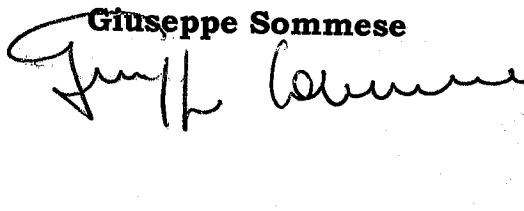 Giuseppe Sommese